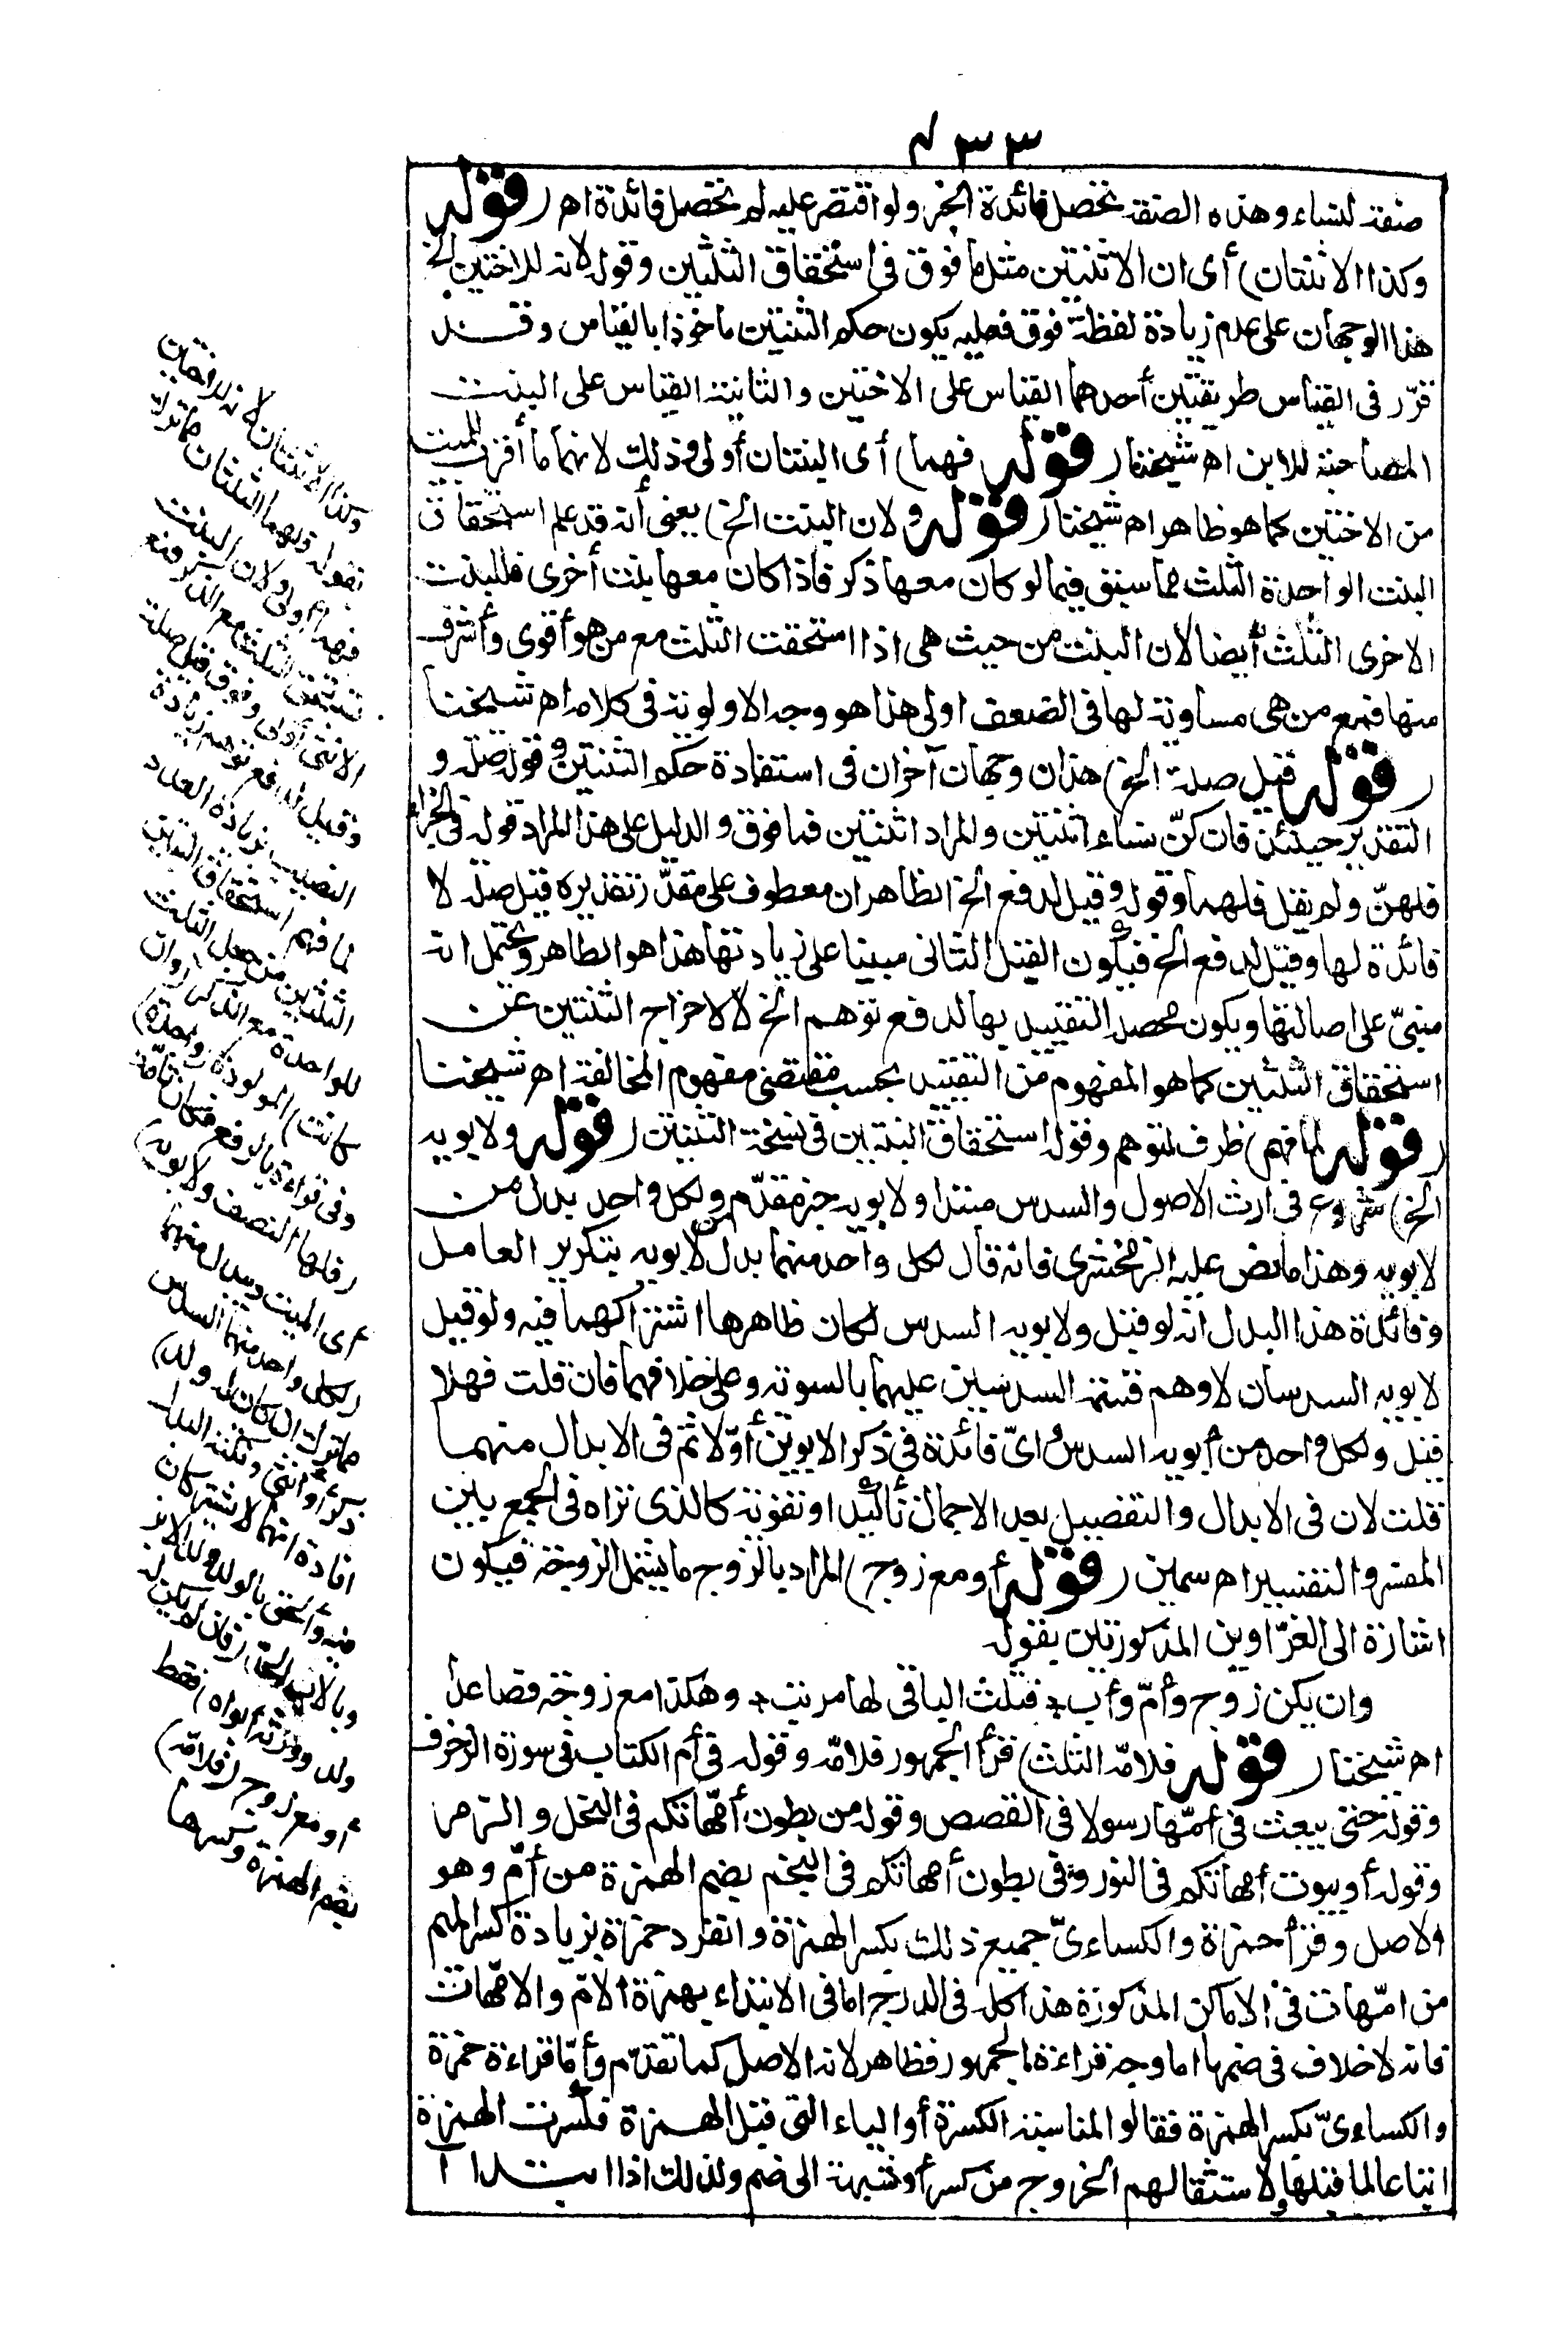 ٤٣٣
صفة لنساء وهذه الصفة تحصل فائدة الخبر ولو اقتصر عليه لم تحصل فائدة اه (قوله
وكذا الاثنتان) أى ان الاثنتين مثل ما فوق فى استحقاق الثلثين وقوله لانه للاختين الخ
هذا الوجهان على عدم زيادة لفظة فوق فعليه يكون حكم الثنتين ماخوذا بالقياس وقد
قرّر فى القياس طريقتين أحدهما القياس على الاختين والثانية القياس على البنت
المصاحبة للابن اه شيخنا (قوله فهما) أى البنتان أولى وذلك لانهما أقرب للميت
من الاختين كما هو ظاهر اه شيخنا (قوله ولان البنت الخ) يعنى أنه قد علم استحقاق
البنت الواحدة الثلث مما سبق فيما لو كان معها ذكر فاذا كان معها بنت أخرى فللبنت
الاخرى الثلث أيضا لان البنت من حيث هى اذا استحقت الثلث مع من هو أقوى وأشرف
منها فمع من هى مساوية لها فى الضعف اولى هذا هو وجه الاولوية فى كلامه اه شيخنا
(قوله قيل صلة الخ) هذان وجهان آخران فى استفادة حكم الثنتين وقوله صلة و
التقدير حينئذ فان كنّ نساء اثنتين والمراد اثنتين فما فوق والدليل على هذا المراد قوله فى الجزاء
فلهنّ ولم يقل فلهما وقوله وقيل لدفع الخ الظاهر ان معطوف على مقدّر تقديره قيل صلة لا
فائدة لها وقيل لدفع الخ فيكون القيل الثانى مبينا على زيادتها هذا هو الظاهر ويحتمل انه
مبنىّ على اصالتها ويكون محصل التقييد بها لدفع توهم الخ لا لاخراج الثنتين عن
استحقاق الثلثين كما هو المفهوم من التقييد بحسب مقتضى مفهوم المخالفة اه شيخنا
(قوله لما فهم) ظرف لتوهم وقوله استحقاق البنتين فى نسخة الثنتين (قوله ولابويه
الخ) شروع فى ارث الاصول والسدس مبتدا ولابويه خبر مقدّم ولكل واحد بدل من
لابويه وهذا ما نص عليه الزمخشرى فانه قال لكل واحد منهما بدل من لابويه بتكرير العامل
وفائدة هذا البدل انه لو قيل ولابويه السدس لكان ظاهرها اشتراكهما فيه ولو قيل
لابويه السدسان لاوهم قسمة السدسين عليهما بالسوية وعلى خلافهما فان قلت فهلا
قيل ولكل واحد من أبويه السدس واىّ فائدة فى ذكر الابوين أوّلا ثم فى الابدال منهما
قلت لان فى الابدال والتفصيل بعد الاجمال تأكيد او تقوية كالذى تراه فى الجمع بين
المفسر والتفسير اه سمين (قوله أو مع زوج) المراد بالزوج ما يشمل الزوجة فيكون
اشارة الى الغرّاوين المذكورتين بقوله
وان يكن زوج وأمّ وأب * فثلث الباقى لها مرتب * وهكذا مع زوجة فصاعدا
اه شيخنا (قوله فلامّه الثلث) قرأ الجمهور فلامّه وقوله فى أم الكتاب فى سورة الزخرف
وقوله حتى يبعث فى أمّها رسولا فى القصص وقوله من بطون أمّهاتكم فى النحل والزمر
وقوله أو بيوت أمهاتكم فى النور وفى بطون أمهاتكم فى النجم بضم الهمزة من أمّ وهو
الاصل وقرأ حمزة والكساءىّ جميع ذلك بكسر الهمزة وانفرد حمزة بزيادة كسر الميم
من امّهات فى الاماكن المذكورة هذا كله فى الدرج اما فى الابتداء بهمزة الامّ والامّهات
فانه لا خلاف فى ضمها اما وجه قراءة الجمهور فظاهر لانه الاصل كما تقدّم وأمّا قراءة حمزة
والكساءىّ بكسر الهمزة فقالوا لمناسبة الكسرة أو الياء التى قبل الهمزة فكسرت الهمزة
اتباعا لما قبلها ولاستثقالهم الخروج من كسر أو شبهه الى ضم ولذلك اذا ابتدا آ
وكذا الاثنتان لانه للاختين
بقوله فلهما الثلثان مما ترك
فهما أولى ولان البنت
تستحق الثلث مع الذكر فمع
الانثى أولى وفوق قيل صلة
وقيل لدفع توهم زيادة
النصيب بزيادة العدد
لما فهم استحقاق البنتين
الثلثين من جعل الثلث
للواحدة مع الذكر (وان
كانت) المولودة (واحدة)
وفى قراءة بالرفع فكان تامّة
(فلها النصف ولابويه)
أى الميت ويبدل منهما
(لكل واحد منهما السدس
مما ترك ان كان له ولد)
ذكر أو أنثى ونكتة البدل
افادة انهما لا يشتركان
فيه وألحق بالولد ولد الابن
وبالاب الجد (فان لم يكن له
ولد وورثه أبواه) فقط
أو مع زوج (فلامّه)
بضم الهمزة وكسرها